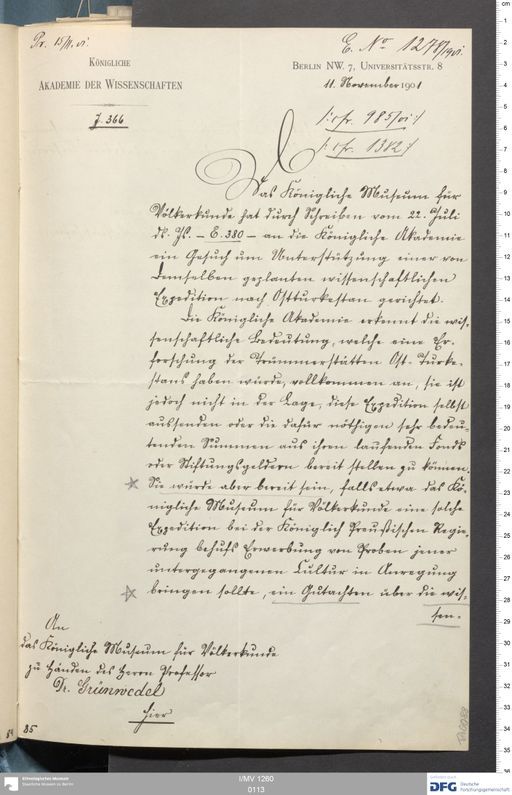 Pr. 15/11. 01
E. No 1278/1901
KÖNIGLICHE
AKADEMIE DER WISSENSCHAFTEN
J. 366
BERLIN NW. 7, UNIVERSITÄTSSTR. 8
11. November 1901
/: cfr. 985/01 :/
/: cfr. 1382 :/
Das Königliche Museum für
Völkerkunde hat durch Schreiben vom 22. Juli
ds. Js. – E. 380 – an die Königliche Akademie
ein Gesuch um Unterstützung einer von
demselben geplanten wissenschaftlichen
Expedition nach Ostturkestan gerichtet.
Die Königliche Akademie erkennt die wis-
senschaftliche Bedeutung, welche eine Er-
forschung der Trümmerstätten Ost-Turke-
stans haben würde, vollkommen an, sie ist
jedoch nicht in der Lage, diese Expedition selbst
auszusenden oder die dafür nöthigen sehr bedeu-
tenden Summen aus ihren laufenden Fonds
oder Stiftungsgeldern bereit stellen zu können.
Sie würde aber bereit sein, falls etwa das Kö-
nigliche Museum für Völkerkunde eine solche
Expedition bei der Königlich Preußischen Regie-
rung behufs Erwerbung von Proben jener
untergegangenen Cultur in Anregung
bringen sollte, ein Gutachten über die wis-
sen-
An
das Königliche Museum für Völkerkunde
zu Händen des Herrn Professor
Dr. Grünwedel
hier
85
I/MV 1260
0113
Ethnologisches Museum
Staatliche Museen zu Berlin
DFG
Deutsche
Forschungsgemeinschaft